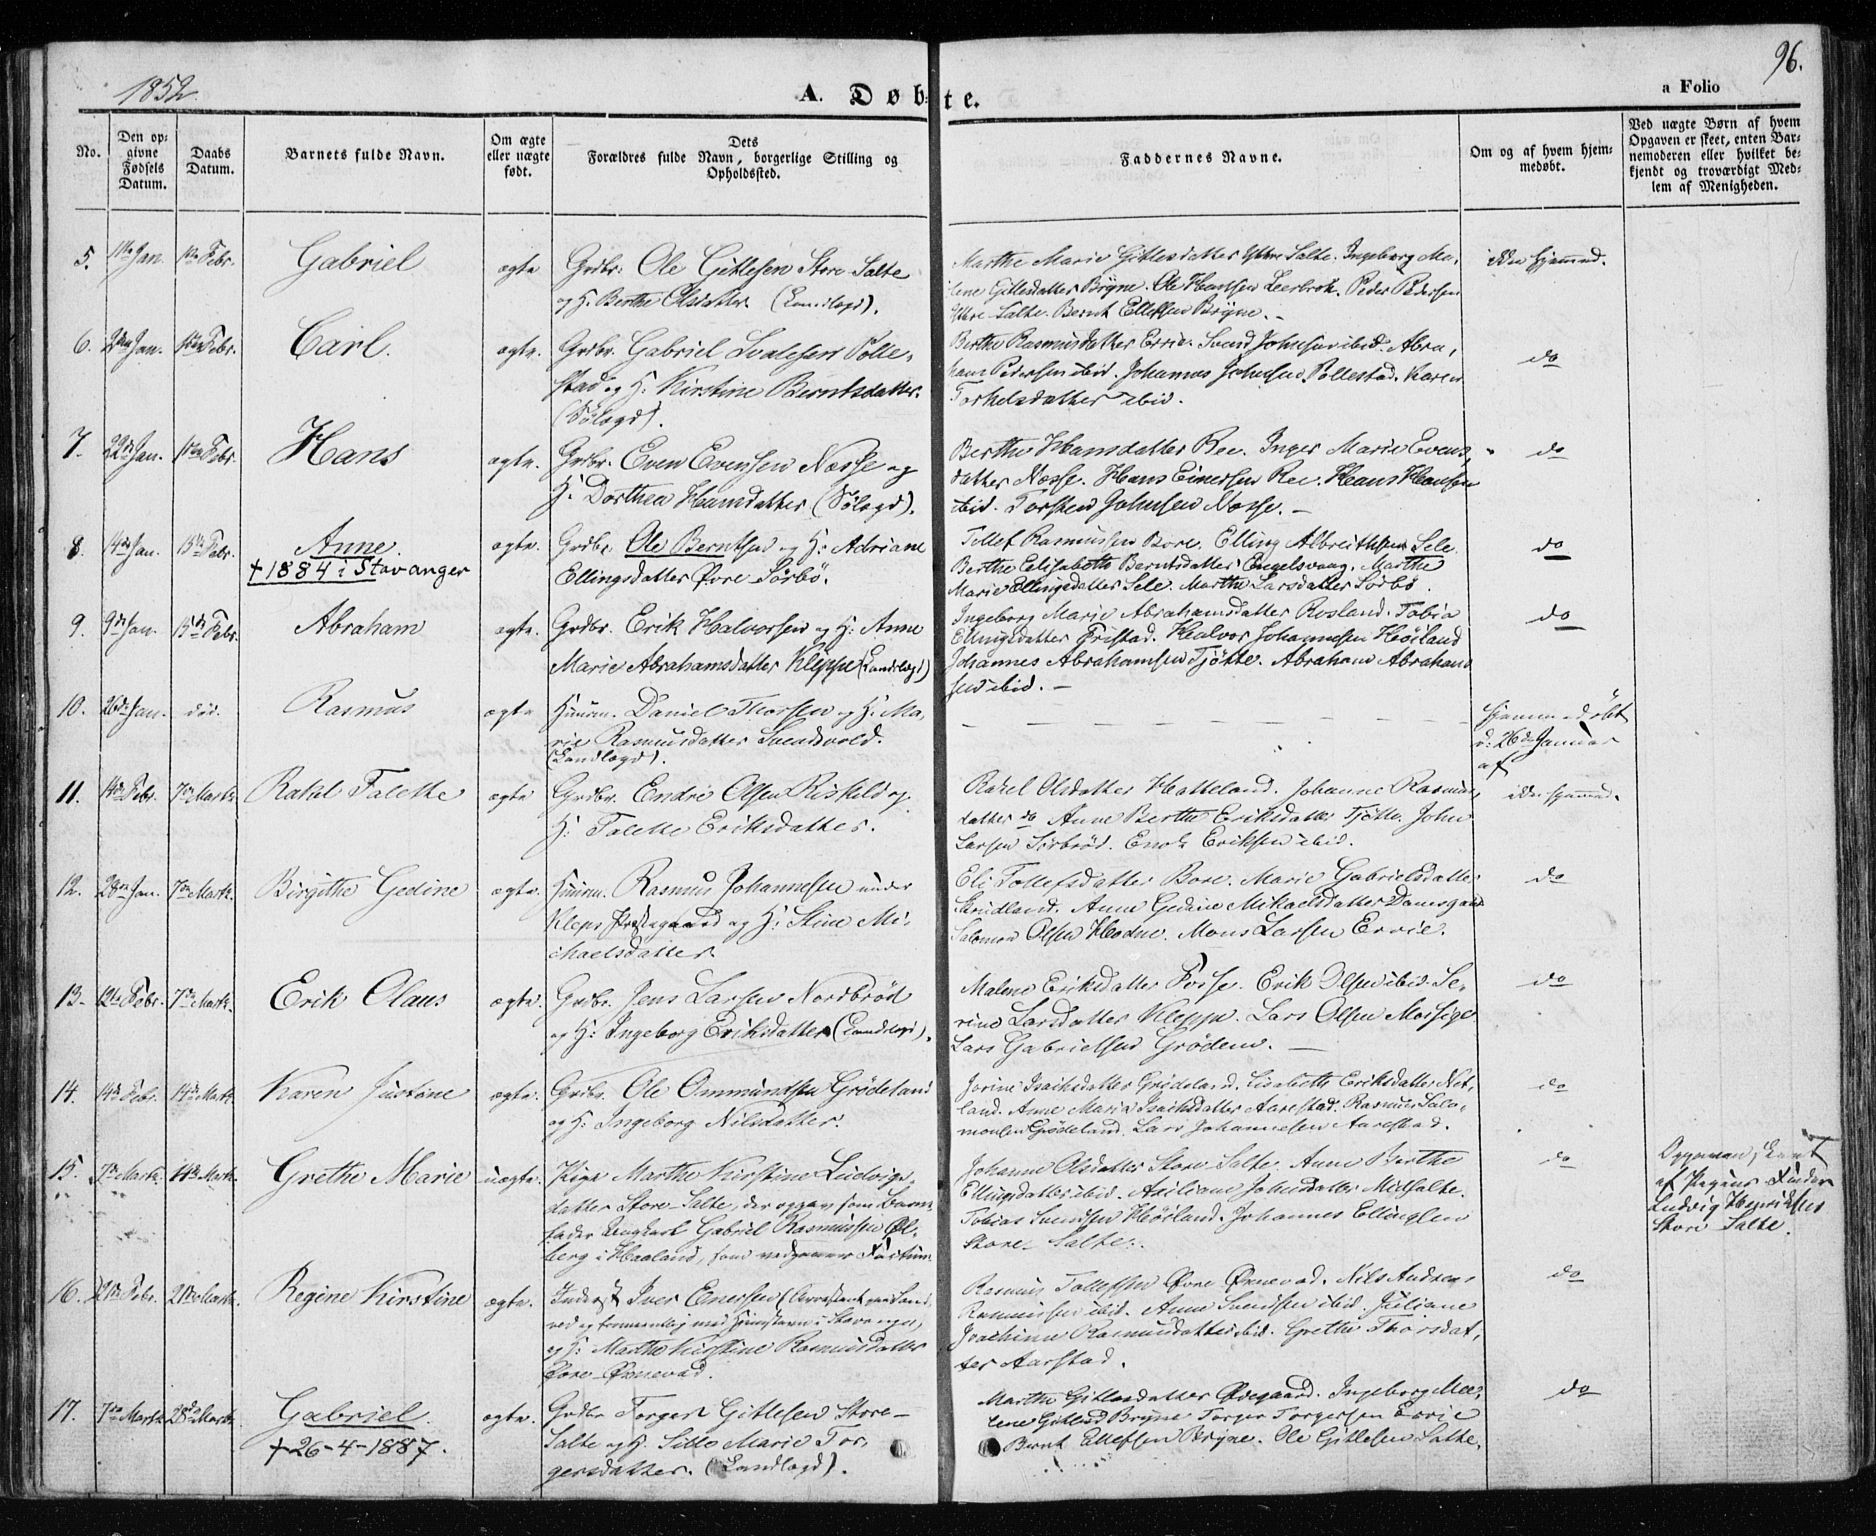 1852.
96.
A. Døbte.
a Folio
No.
Den op-
givne
Fødsels
Datum.
Daabs
Datum.
Barnets fulde Navn.
Om ægte
eller uægte
født.
Dets
Forældres fulde Navn, borgerlige Stilling og
Opholdssted.
Faddernes Navne.
Om og af hvem hjem-
medøbt.
Ved uægte Børn af hvem
Opgaven er skeet, enten Bar-
nemoderen eller hvilket be-
kjendt og troværdigt Med-
lem af Menigheden.
5. Jan. Febr. Gabriel ægte Grdbr. Ole Gitlesen Store Salte
og H. Berthe Olsdatter. (Landlagd).
Marthe Marie Gitlesdatter Salte. Ingeborg Ma-
lene Gitlesdatter Bryne. Ole Hansen Leerbrek. Peder Pedersen
Salte. Bernt Ellefsen Bryne.
ikke hjemmed.
6. Jan. Febr. Carl. ægte. Grdbr. Gabriel Svalesen Polle-
stad og H. Kirstine Berntsdatter.
(Sølagd).
Berthe Rasmusdatter Errie. Svend Johnsen ibid. Abra-
ham Pedersen ibid. Johannes Johnsen Pollestad. Karen
Torkelsdatter ibid.
do
7. 22de Jan. Febr. Hans ægte. Grdbr. Even Evensen Næsse og
H. Dorthea Hansdatter (Sølagd).
Berthe Hansdatter Ree. Inger Marie Evens-
datter Næsse. Hans Einersen Ree. Hans Hansen
ibid. Torsten Johnsen Næsse.
do
8. 14de Jan. 15de Febr. Anne.
† 1884 i Stavanger
ægte. Grdbr. Ole Berntsen og H. Adriane
Ellingsdatter Øvre Sørbø.
Tollef Rasmussen Bore. Elling Albreithsen Sele.
Berthe Elisabeth Berntsdatter Engelsvaag. Marthe
Marie Ellingsdatter Sele. Marthe Larsdatter Sørbø.
do
9. 9de Jan. 15de Febr. Abraham ægte. Grdbr. Erik Halvorsen og H. Anne
Marie Abrahamsdatter Kleppe (Landlagd)
Ingeborg Marie Abrahamsdatter Rosland. Tobia
Ellingsdatter Friestad. Halvor Johannesen Høiland
Johannes Abrahamsen Tjøtte. Abraham Abraham-
sen ibid.
do
10. 26de Jan. død. Rasmus ægte Huusm. Daniel Thorsen og H. Ma-
rie Rasmusdatter Svendsvold.
(Landlagd).
hjemmedøbt
d. 26de Januar
af
11. Febr. 7de Marts Rakel Talette ægte Grdbr. Endre Olsen Riskeld og
H. Talette Eriksdatter.
Rakel Olsdatter Hatteland. Johanne Rasmus-
datter do Anne Berthe Eriksdatter Tjøtte. John
Larsen Sørbrød. Enok Eriksen ibid.
ikke hjemmed.
12. 28de Jan. 7de Marts. Birgithe Gedine ægte. Huusm. Rasmus Johannesen under
Kleps Præstegaard og H. Stine Mi-
chaelsdatter.
Eli Tollefsdatter Bore. Marie Gabrielsdatter
Skrudland. Anne Gedine Mikaelsdatter Damsgaard
Salomon Olsen Hodne. Mons Larsen Errie.
do
13. 12te Febr. 7de Marts. Erik Olaus ægte. Grdbr. Jens Larsen Nordbrød
og H. Ingeborg Eriksdatter (Landlagd).
Malene Eriksdatter Fosse. Erik Olsen ibid. Se-
rine Larsdatter Kleppe. Lars Olsen Mossige
Lars Gabrielsen Grødem.
do
14. 14de Febr. 14de Marts Karen Justine ægte. Grdbr. Ole Ommundsen Grødeland
og H. Ingeborg Nilsdatter.
Jorine Isaksdatter Grødeland. Lisabeth Eriksdatter Net-
land. Anne Maria Isaksdatter Aarestad. Rasmus Salo-
monsen Grødeland. Lars Johannesen Aarestad.
do
15. 7de Marts. 14de Marts. Grethe Marie uægte. Pige Marthe Kirstine Ludvigs-
datter Store Salte, der opgav som Barne-
fader Ungkarl Gabriel Rasmussen Øl-
berg i Haaland, som vedgaaer Factum.
Johanne Olsdatter Store Salte. Anne Berthe
Ellingsdatter ibid. Axeliane Johnsdatter Midsalte.
Tobias Svendsen Høiland. Johannes Ellingsen
Store Salte.
do
Opgaven skeet
af Pigens Fader
Ludvig Henriksen
Store Salte.
16. Febr. Marts. Regine Kirstine ægte. Inderst Iver Enersen (Arrestant
i Stavanger,
og H. Marthe Kirstine Rasmusdatter
Øvre Ørnevad.
Rasmus Tollefsen Øvre Ørnevad. Nils Andreas
Rasmussen ibid. Anne Svendsen ibid. Juliane
Joachime Rasmusdatter ibid. Grethe Thorsdat-
ter Aarstad.
do
17. 7de Marts 28de Marts. Gabriel.
† 26-4-1887.
ægte. Grdbr. Torger Gitlesen Store-
Salte og H. Sille Marie Tor-
gersdatter. (Landlagd).
Marthe Gitlesdatter Ødegaard. Ingeborg Ma-
lene Bryne Torger Torgersen Errie
Bernt Ellefsen Bryne. Ole Gitlesen Salte.
do